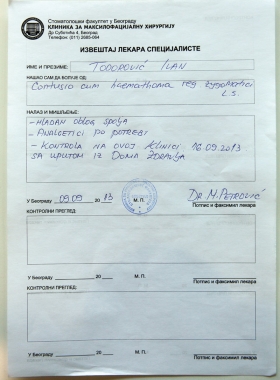 Стоматолошки факултет у Београду
КЛИНИКА ЗА МАКСИЛОФАЦИЈАЛНУ ХИРУРГИЈУ
Др Суботића 4, Београд
Телефон: (011) 2685-064
ИЗВЕШТАЈ ЛЕКАРА СПЕЦИЈАЛИСТЕ
ИМЕ И ПРЕЗИМЕ: TODOROVIĆ ILAN
НАШАО САМ ДА БОЛУЈЕ ОД:
Contusio cum haemathoma reg zygomatici
L.S.
НАЛАЗ И МИШЉЕЊЕ:
- HLADAN OBLOG SPOLJA
- ANALGETICI PO POTREBI
- KONTROLA NA OVOJ KLINICI 16.09.2013
SA UPUTOM IZ DOMA ZDRAVLJA
DR M. PETROVIĆ
У Београду 09.09 20 13 М. П. Потпис и факсимил лекара
КОНТРОЛНИ ПРЕГЛЕД:
У Београду 20 М. П. Потпис и факсимил лекара
КОНТРОЛНИ ПРЕГЛЕД:
У Београду 20 М. П. Потпис и факсимил лекара